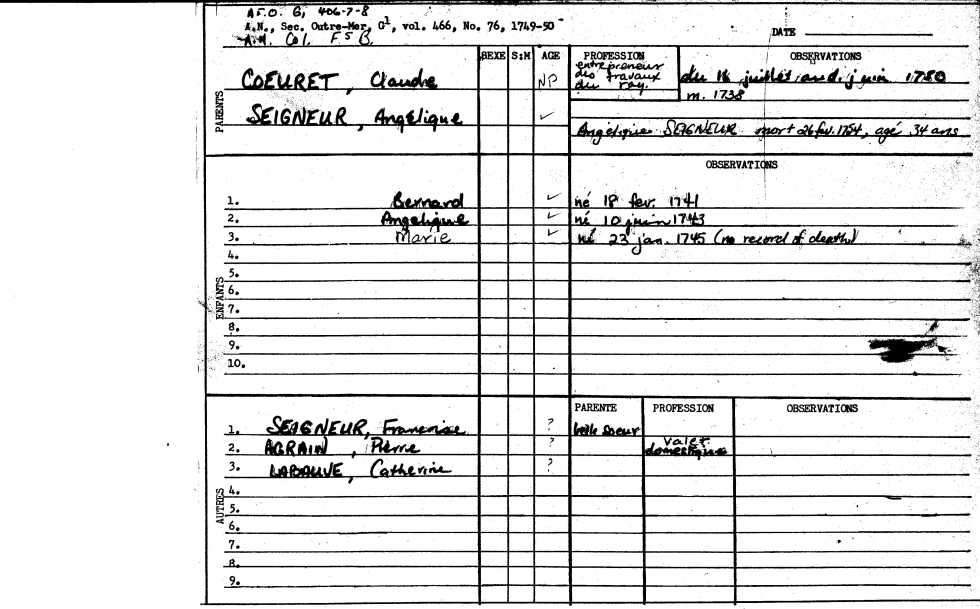 A F.O. G, 406-7-8
A.N., Sec. Outre-Mer, G1, vol. 466, No. 76, 1749-50
A.N. Col. F5B.
DATE
SEXE S:M AGE PROFESSION OBSERVATIONS
PARENTS
COEURET, Claude NP entrepreneur des travaux du roy. du 16 juillet au d. juin 1750
m. 1738
SEIGNEUR, Angélique ✓
Angélique SEIGNEUR mort 26 fev. 1754, agé 34 ans
OBSERVATIONS
ENFANTS
1. Bernard ✓ né 18 fev. 1741
2. Angelique ✓ né 10 juin 1743
3. Marie ✓ né 23 jan. 1745 (no record of death)
4.
5.
6.
7.
8.
9.
10.
PARENTE PROFESSION OBSERVATIONS
AUTRES
1. SEIGNEUR, Francoise ? belle soeur
2. AGRAIN, Pierre ? valet domestique
3. LABAUVE, Catherine ?
4.
5.
6.
7.
8.
9.